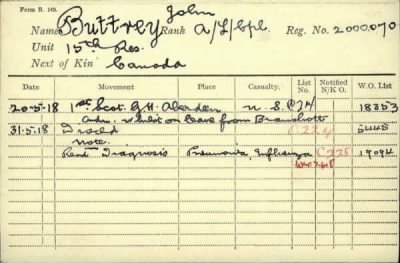 Form B. 189.
Name Buttrey John Rank A/L/Cpl. Reg. No. 2000,070
Unit 15th Res.
Next of Kin Canada
Date Movement Place Casualty. List No. Notified N/K O. W.O. List
20-5-18 1st Scot. G.H. Aberdeen N. S. C274 18353
Adm. whilst on leave from Bramshott
31.5.18 Discd C.224 5445
Note.
Read Diagnosis Pneumonia, Influenza C225 19094